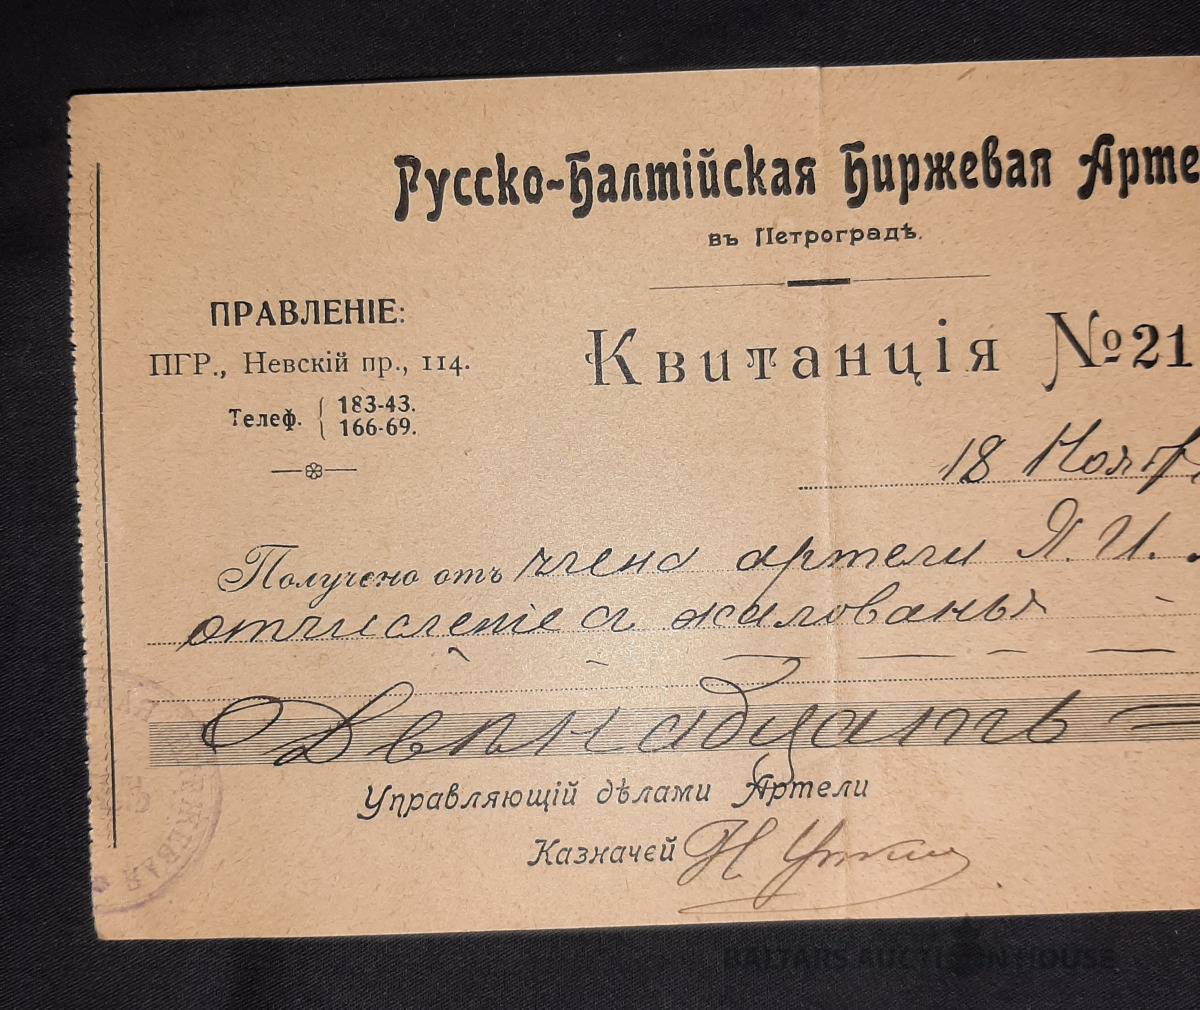 Русско-Балтійская Биржевая Арте
въ Петроградѣ.
ПРАВЛЕНІЕ:
ПГР., Невскій пр., 114.
Телеф. { 183-43.
166-69.
Квитанція № 21
18 Ноябр
Получено отъ члена артели Я. И.
отчисленіе съ жалованья
Двенадцать
Управляющій дѣлами Артели
Казначей Н
ЖЕВАЯ
BALTARS AUCTION HOUSE